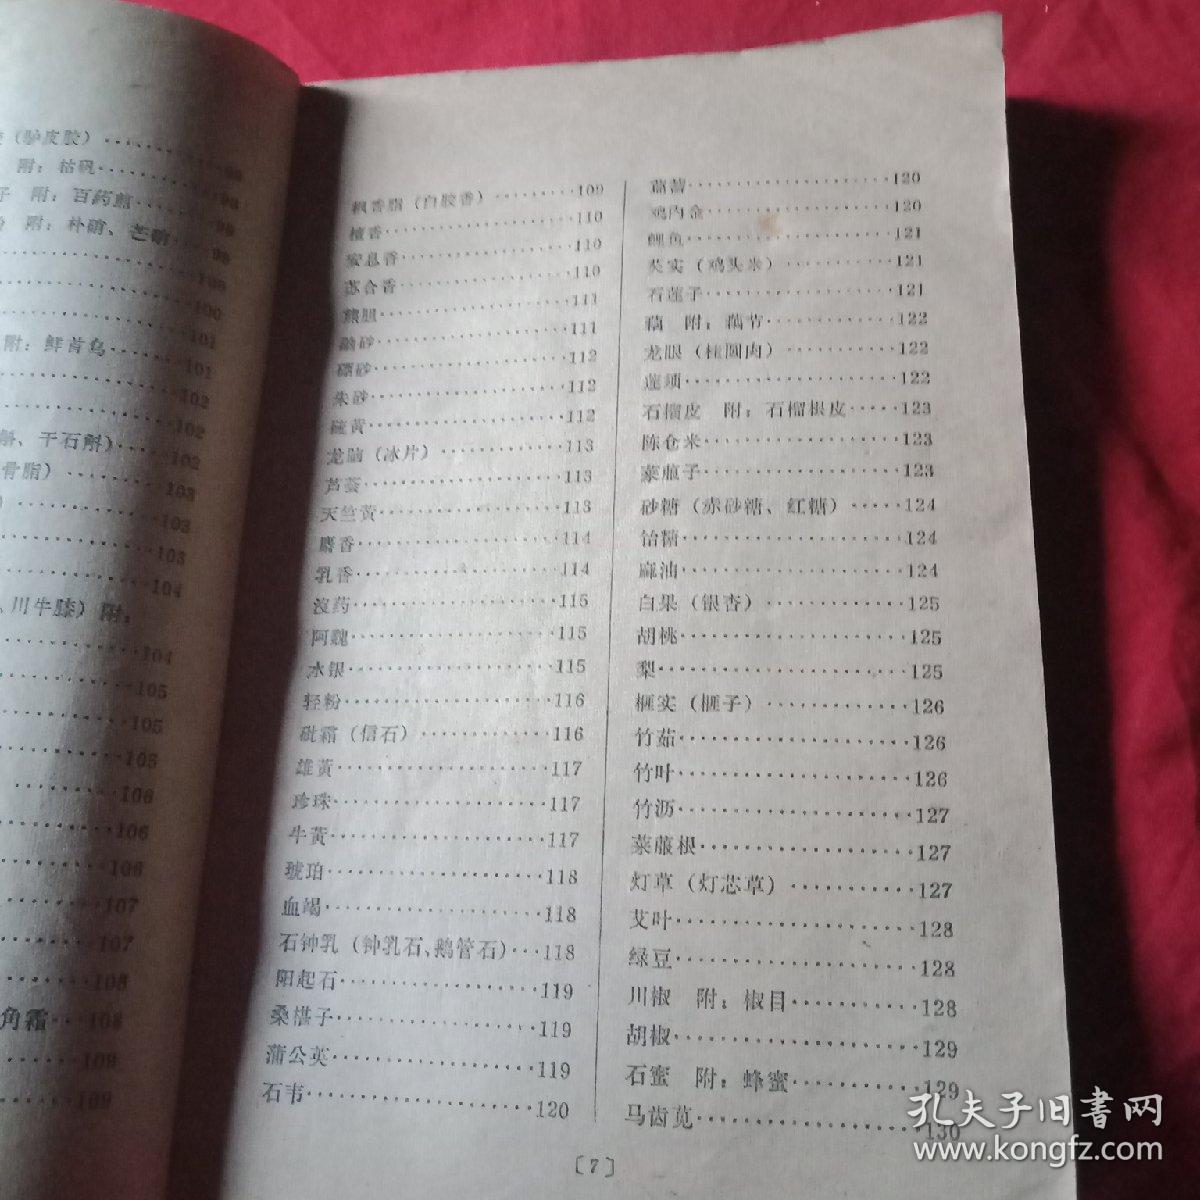 (驴皮胶)
附：枯矾
附：百药煎 98
附：朴硝、芒硝 99
100
100
101
附：鲜首乌 101
102
102
、干石斛) 102
骨脂) 103
103
103
104
、川牛膝) 附：
104
105
105
105
106
106
106
107
107
108
角霜 108
109
109
枫香脂 (白胶香) 109
檀香 110
安息香 110
苏合香 110
熊胆 111
硇砂 111
硼砂 112
朱砂 112
硫黄 112
龙脑 (冰片) 113
芦荟 113
天竺黄 113
麝香 114
乳香 114
没药 115
阿魏 115
水银 115
轻粉 116
砒霜 (信石) 116
雄黄 117
珍珠 117
牛黄 117
琥珀 118
血竭 118
石钟乳 (钟乳石、鹅管石) 118
阳起石 119
桑椹子 119
蒲公英 119
石韦 120
萹蓄 120
鸡内金 120
鲤鱼 121
芡实 (鸡头米) 121
石莲子 121
藕 附：藕节 122
龙眼 (桂圆肉) 122
莲须 122
石榴皮 附：石榴根皮 123
陈仓米 123
莱菔子 123
砂糖 (赤砂糖、红糖) 124
饴糖 124
麻油 124
白果 (银杏) 125
胡桃 125
梨 125
榧实 (榧子) 126
竹茹 126
竹叶 126
竹沥 127
莱菔根 127
灯草 (灯芯草) 127
艾叶 128
绿豆 128
川椒 附：椒目 128
胡椒 129
石蜜 附：蜂蜜 129
马齿苋 130
〔7〕
孔夫子旧书网
www.kongfz.com